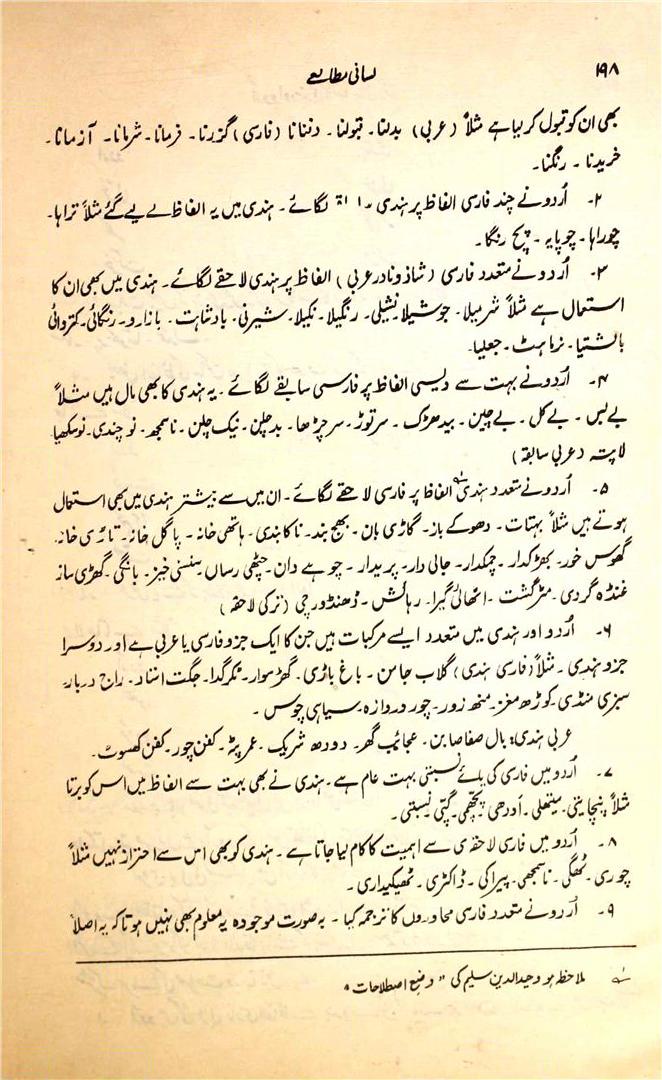 ۱۹۸
لسانی مطالعے
بھی ان کو قبول کر لیا ہے مثلاً (عربی) بدلنا۔ قبولنا۔ دفنانا (فارسی) گزرنا۔ فرمانا۔ شرمانا۔ آزمانا۔
خریدنا ۔ رنگنا۔
۲۔ اُردو نے چند فارسی الفاظ پر ہندی لگائے۔ ہندی میں یہ الفاظ لے لیے گئے مثلاً تراہا۔
چوراہا۔ چوپایہ ۔ پچ رنگا۔
۳۔ اُردو نے متعدد فارسی (شاذ و نادر عربی) الفاظ پر ہندی لاحقے لگائے۔ ہندی میں بھی ان کا
استعمال ہے مثلاً شرمیلا۔ جوشیلا نشیلی۔ رنگیلا۔ نکیلا۔ شیرنی۔ بادشاہت ۔ بازارو۔ رنگائی۔ کتروائی
بالشتیا۔ نرماہٹ۔ جعلیا۔
۴۔ اُردو نے بہت سے دیسی الفاظ پر فارسی سابقے لگائے ۔ یہ ہندی کا بھی مال ہیں مثلاً
بے بس ۔ بے کل ۔ بے چین۔ بیدھڑک ۔ سر توڑ۔ سر چڑھا۔ بد چلن۔ نیک چلن ۔ ناسمجھ۔ نوچندی۔ نوسکھیا
لاپتہ (عربی سابقہ)
۵۔ اُردو نے متعدد ہندی الفاظ پر فارسی لاحقے لگائے۔ ان میں سے بیشتر ہندی میں بھی استعمال
ہوتے ہیں مثلاً بہتات ۔ دھوکے باز۔ گاڑی بان ۔ بھج بند۔ ناکا بندی ۔ ہاتھی خانہ ۔ پاگل خانہ۔ خانہ۔
گھوس خور۔ بھڑکدار۔ چمکدار۔ جالی دار۔ پہریدار ۔ چوہے دان۔ چٹھی رساں۔ سنسنی خیز۔ گھڑی ساز
غنڈہ گردی۔ مٹر گشت ۔ اٹھائی گیرا۔ رہائش ۔ ڈھنڈورچی (ترکی لاحقہ)
۶۔ اُردو اور ہندی میں متعدد ایسے مرکبات ہیں جن کا ایک جزو فارسی یا عربی ہے اور دوسرا
جزو ہندی ۔ مثلاً (فارسی ہندی) گلاب جامن ۔ باغ باڑی۔ گھڑسوار۔ جگت استاد۔ راج دربار۔
سبزی منڈی۔ کوڑھ مغز۔ منھ زور۔ چور دروازہ۔ سیاہی چوس ۔
عربی ہندی: مال صفا صابن۔ عجائب گھر۔ دودھ شریک ۔ عمر پٹہ۔ کفن چور۔ کفن کھسوٹ۔
۷۔ اُردو میں فارسی کی یائے نسبتی بہت عام ہے۔ ہندی نے بھی بہت سے الفاظ میں اس کو برتا
مثلاً پنچایتی۔ میتھلی۔ اودھی۔ پچھمی۔ گپی۔ نسبتی۔
۸۔ اُردو میں فارسی لاحقہ ی سے اہمیت کا کام لیا جاتا ہے۔ ہندی کو بھی اس سے احتراز نہیں مثلاً
چوری۔ ٹھگی۔ ناسمجھی۔ پیراکی۔ ڈاکٹری۔ ٹھیکیداری۔
۹۔ اُردو نے متعدد فارسی محاوروں کا ترجمہ کیا ۔ بہ صورت موجودہ یہ معلوم بھی نہیں ہوتا کہ یہ اصلاً
ملاحظہ ہو وحید الدین سلیم کی "وضع اصطلاحات"